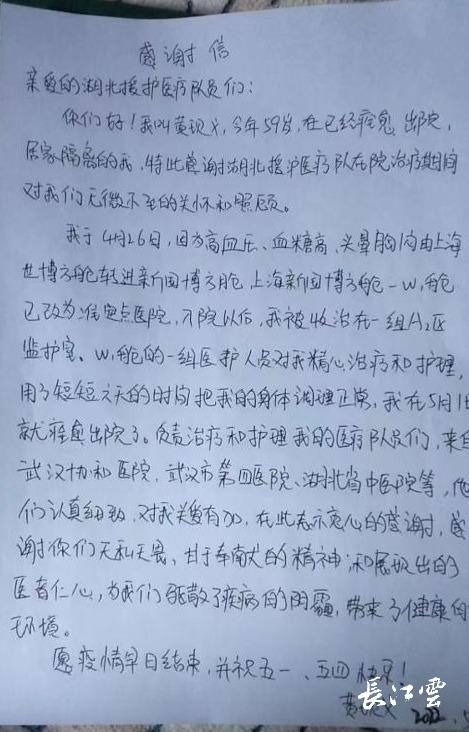 感谢信
亲爱的湖北援护医疗队员们：
你们好！我叫黄现义，今年59岁，在已经痊愈出院，
居家隔离的我，特此感谢湖北援沪医疗队在院治疗期间
对我们无微不至的关怀和照顾。
我于4月26日，因为高血压、血糖高、头晕胸闷由上海
世博方舱转进新国博方舱，上海新国博方舱一W1舱
已改为准定点医院，入院以后，我被收治在一组A2区
监护室、W1舱的一组医护人员对我精心治疗和护理，
用了短短六天的时间把我的身体调理正常，我在5月1
就痊愈出院了。负责治疗和护理我的医疗队员们，来自
武汉协和医院，武汉市第四医院、湖北省中医院等，他
们认真细致，对我关爱有加，在此表示衷心的感谢，感
谢你们无私无畏、甘于奉献的精神，和展现出的
医者仁心，为我们驱散了疾病的阴霾，带来了健康的
环境。
愿疫情早日结束，并祝五一、五四快乐！
黄 2022.5
長江雲